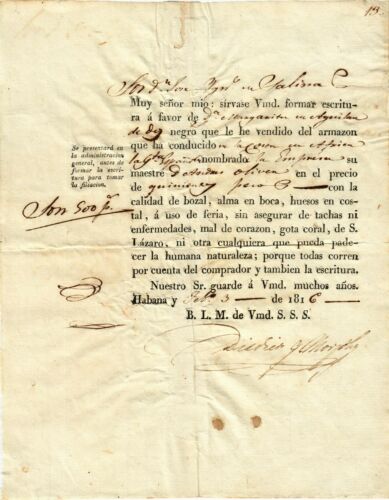 13.
Sor dn Jose Ygno en Salinas
Muy señor mio: sírvase Vmd. formar escritu-
ra á favor de Da Margarita
de negro que le he vendido del armazon
que ha conducido
la Ga Española nombrado la Empresa su
maestre dn Andres Oliver en el precio
de quinientos pesos — con la
calidad de bozal, alma en boca, huesos en cos-
tal, á uso de feria, sin asegurar de tachas ni
enfermedades, mal de corazon, gota coral, de S.
Lázaro, ni otra cualquiera que pueda pade-
cer la humana naturaleza; porque todas corren
por cuenta del comprador y tambien la escritura.
Nuestro Sr. guarde á Vmd. muchos años.
Habana y Febo 3 — de 1816 —
B. L. M. de Vmd. S. S. S.
Se presentará en
la administracion
general, antes de
formar la escri-
tura para tomar
la filiacion.
Son 500 ps.